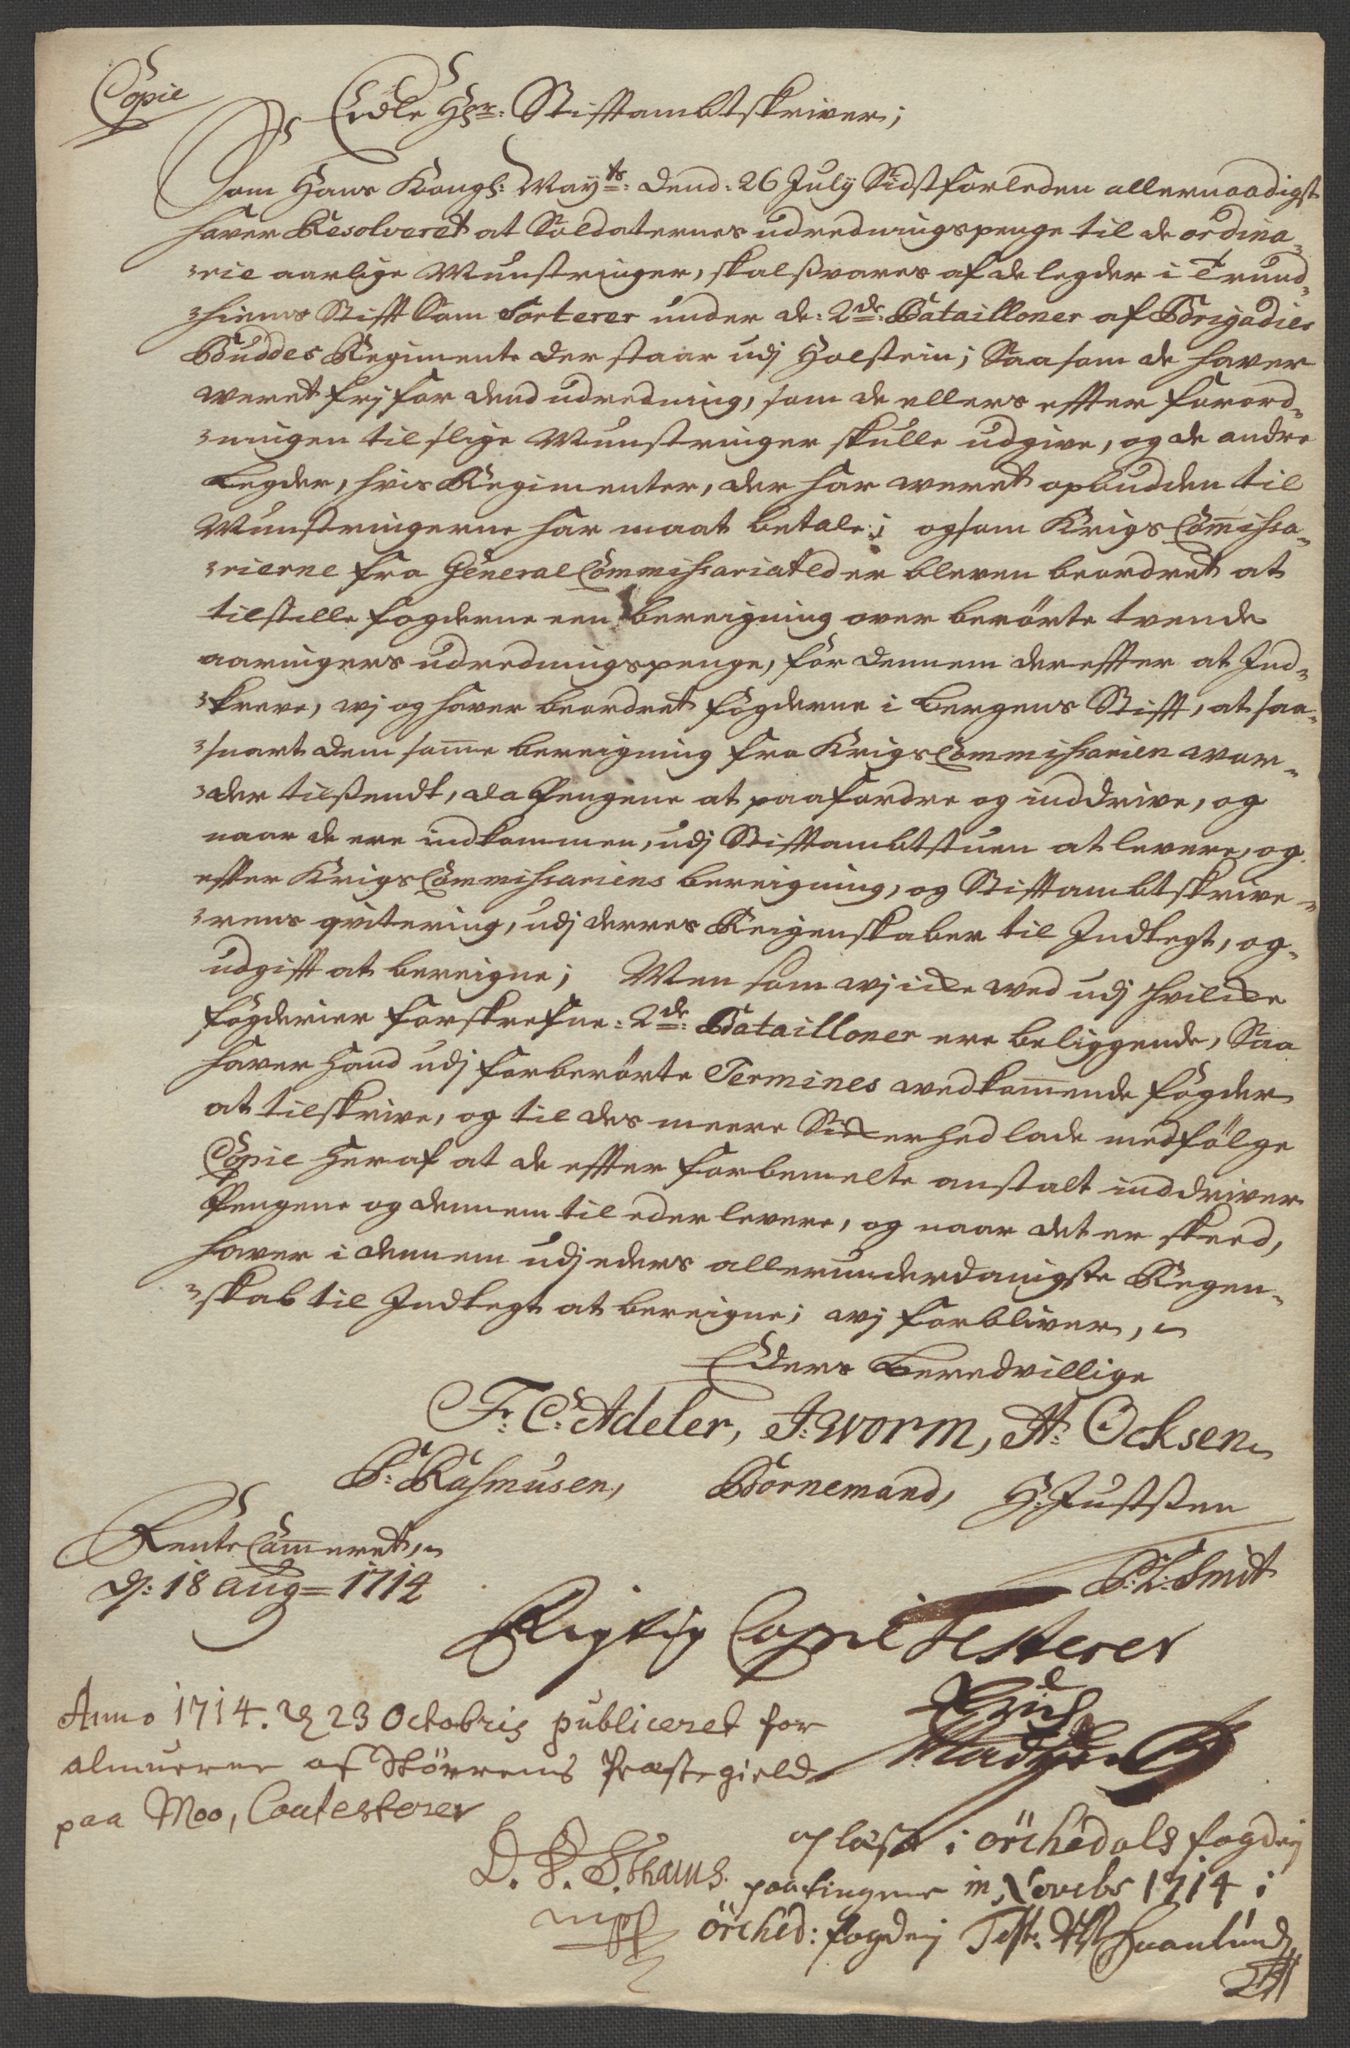 Copie
Edle Hr: Stifftambtskriver;
Som Hans Kongl: Mayts: dend: 26 July Sidstforleden allernaadigst
hafver Resolveret at Soldaternes udredningspenge til de ordina-
-rie aarlige Munstringer, skal svares af de legder i Trund-
-hiems Stifft Som Sorterer under de: 2de: Batailloner af Brigadier
Buddes Regimente der staar udj Holstein; Saasom de hafver
weret frj for dend udredning, som de ellers effter forord-
-ningen til slige Munstringer skulle udgive, og de andre
Legder, hvis Regimenter, der har weret opbudden til
Munstringerne har maat betale; og som Krigs Com̅issa-
-rierne fra General Commissariatet er bleven beordret at
tilstille fogderne een bereigning over berørte tvende
aaringers udredningspenge, for dennem dereffter at Ind-
-kreve, wj og hafver beordret fogderne i Bergens Stifft, at saa-
-snart dem som̅e bereigning fra Krigs Commissarien wor-
-der tilsendt, da Pengene at paafordre og inddrive, og
naar de ere indkommen, udj Stifftambtstuen at levere, og
effter Krigs Commissariens bereigning, og Stifftambtskrive-
-rens qvitering, udj derres Reigenskaber til Indtegt, og
udgifft at bereigne; Men som wj icke wed udj hvilcke
fogderier forskrefne: 2de: Batailloner ere beliggende, Saa
hafver Hand udj forberørte Termines wedkom̅ende fogder
at tilskrive, og til des meere Sickerhed lade medfølge
Copie Heraf at de effter forbemelte anstalt inddriver
Pengene og dennem til eder levere, og naar det er skeed,
hafver i dennem udj eders allerunderdanigste Regen-
-skab til Indtegt at bereigne; wj forbliver,
Eders Beredvillige
Fr: C: Adeler, J: Worm, A: Ocksen
P: Rasmusen, Bornemand, H: Justsen
Rente Cam̅eret,
d: 18 aug= 1714
P: L: Smit
Rigtig Copie Testerer
Erich
Anno 1714. d 23 Octobris publiceret for
almuerne af Størrens Præstegield
paa Moo, Contesterer
D. P. S.
mpp
oplæst i Örchedals fogderj
paa tingene in Novebr 1714 i
Örched: fogderj Test: